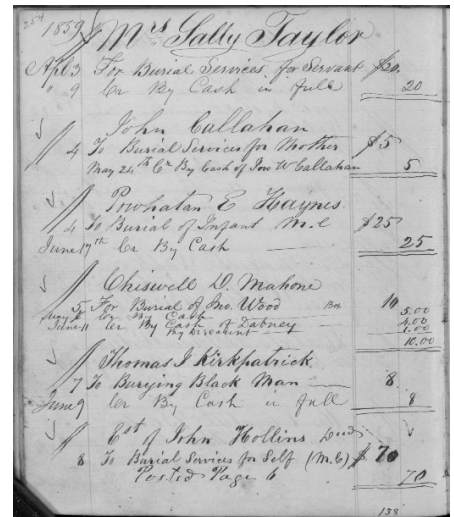 254
1859 Mrs Sally Taylor
Apl 3 For Burial Services for Servant $20
" 9 Cr By Cash in full 20
John Callahan
4 To Burial Services for Mother $5
May 24th Cr By Cash of Jno W Callahan 5
Powhatan E Haynes
4 To Burial of Infant M.C $25
June 17th Cr By Cash 25
Chiswell D. Mahone
5 For Burial of Jno. Wood Box 10
Cr By Cash 5.00
June 11 Cr By Cash of Dabney 4.00
By Discount 1.00
10.00
Thomas J Kirkpatrick
7 To Burying Black Man 8
June 9 Cr By Cash in full 8
Est of John Hollins Decd
8 To Burial Services for Self (M.C) $70
Posted Page 6 70
138